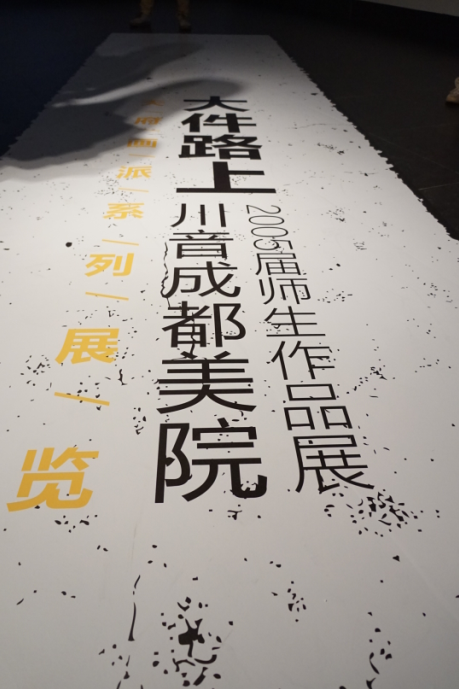 天/府/画/派/系/列/展/览
大件路上川音成都美院
2005届师生作品展